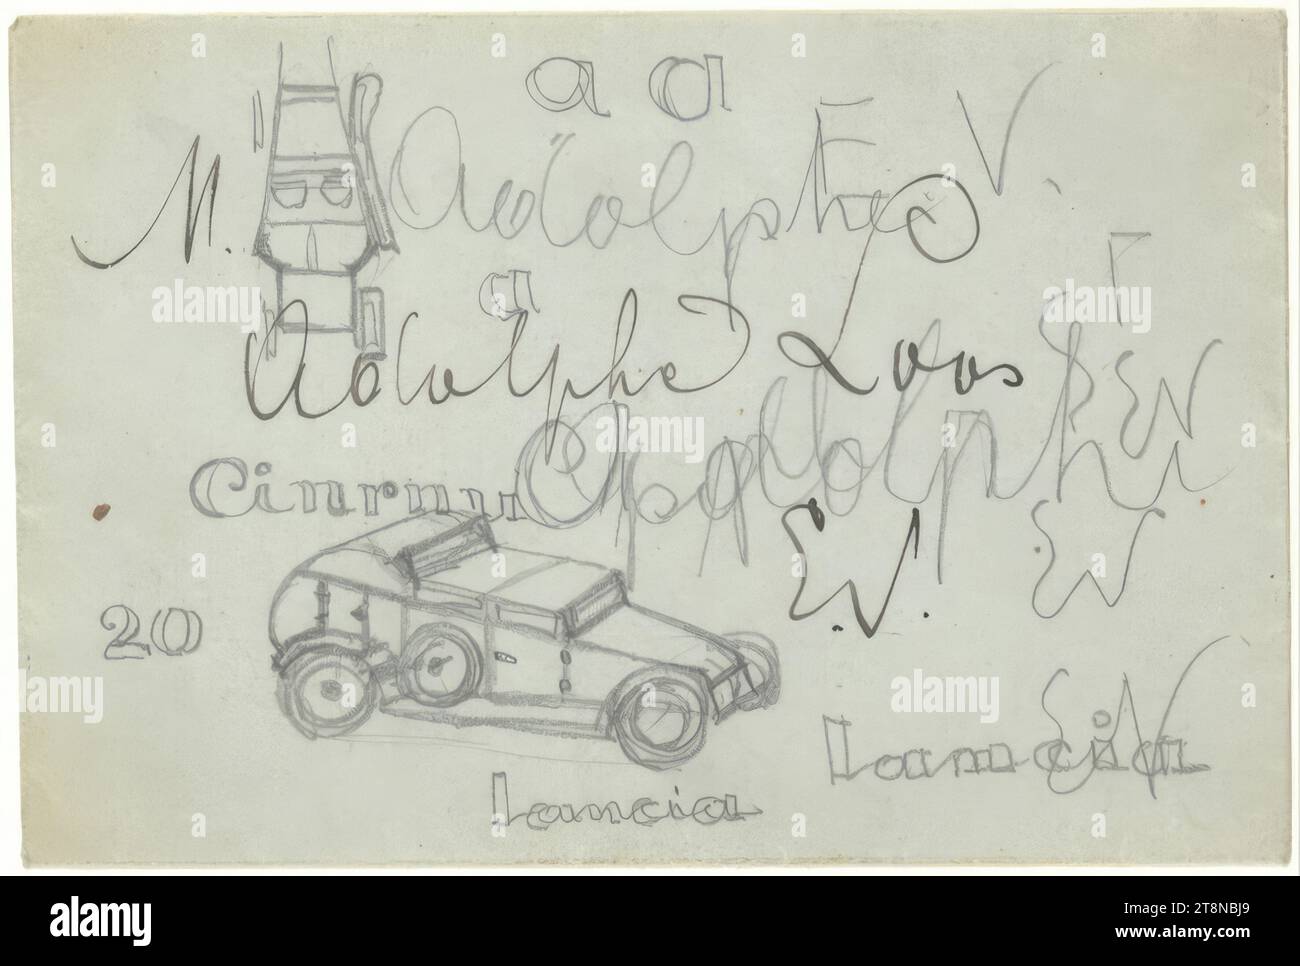 a a
M. Adolphe V.
a
Adolphe Loos
Adolphe
E.V.
20
Lancia
Lancia
E.V.
alamy
Image ID: 2T8NBJ9
www.alamy.com